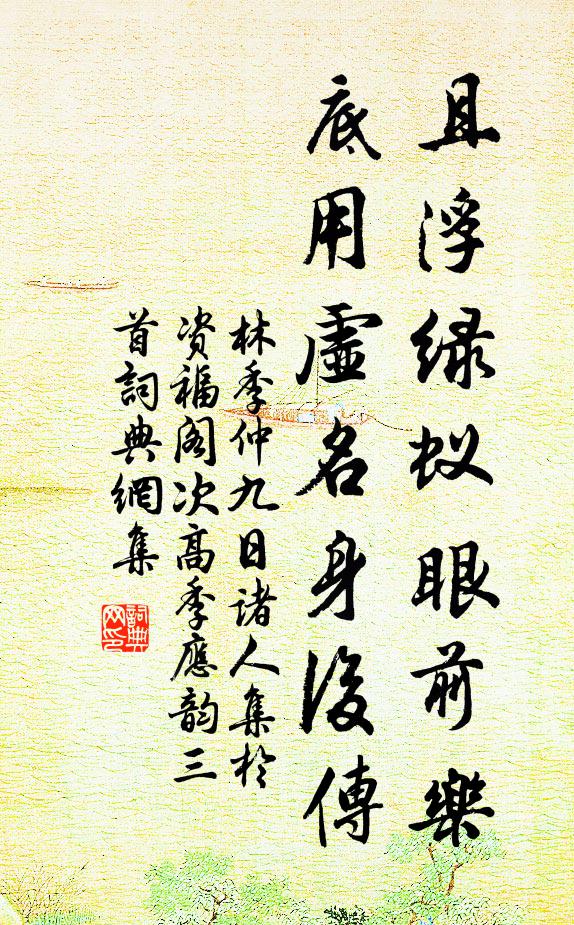 且浮緑蚁眼前樂
底用虛名身後傳
林季仲九日诸人集於
资福阁次高季應韵三
首詞典網集
詞典网印